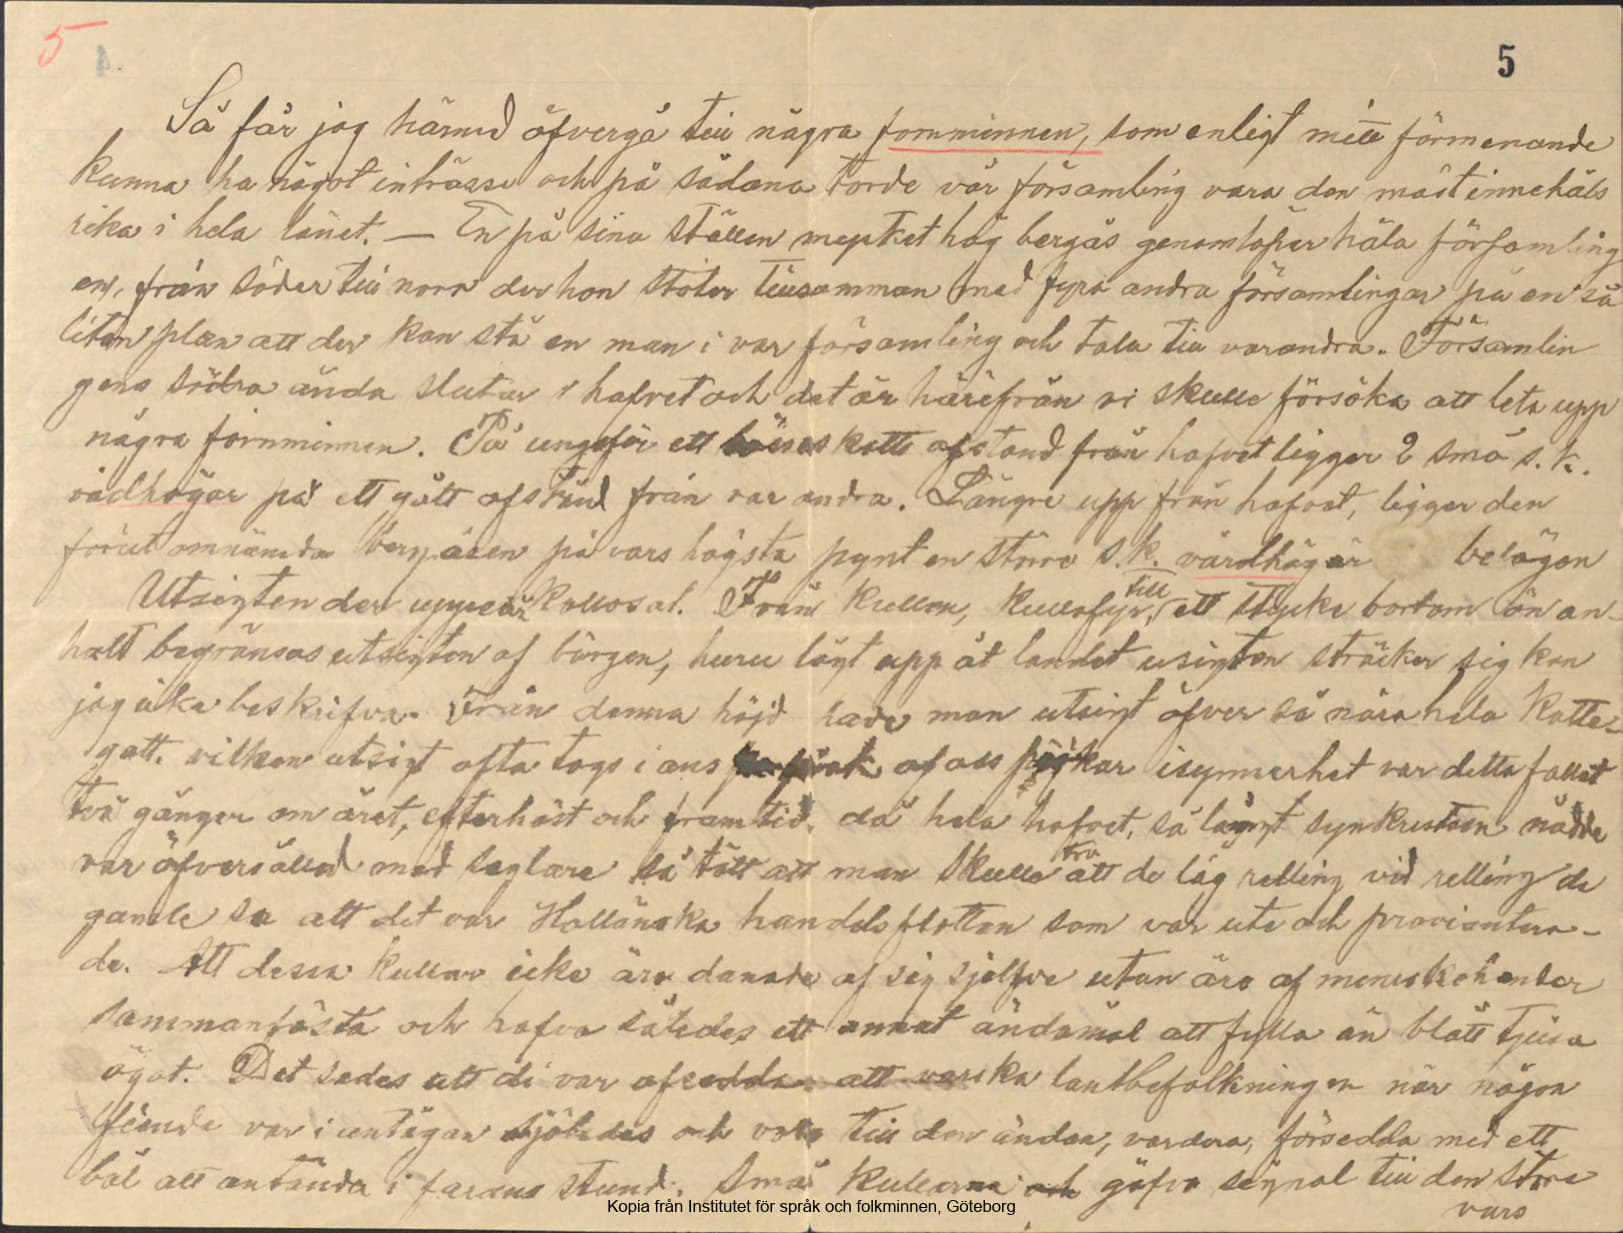 5
5
Så får jag härmed öfvergå till några fornminnen, som enligt mitt förmenande
kunna ha något inträsse och på sådana torde vår församling vara den mäst innehåls
rika i hela länet. — En på sina ställen mycket hög bergås genomlöper häla församling
en, från söder till norr der hon stöter tillsamman med fyra andra församlingar på en så
liten plan att der kan stå en man i var församling och tala till varandra. Församlin
gens södra ända slutar i hafvet och det är härifrån vi skulle försöka att leta upp
några fornminnen. På ungefär ett bösseskotts afstånd från hafvet ligger 2 små s.k.
vådhögar på ett gått afstånd från varandra. Längre upp från hafvet, ligger den
förut omnämda bergåsen på vars högsta pynt en större s.k. vårdhög är belägen
Utsigten der uppe är kollosal. Från Kullen, Kullafyr, till ett stycke bortom ön an-
halt begränsas utsigten af börgen, huru lågt upp åt landet usigten sträcker sig kan
jag icke beskrifva. Från denna höjd hade man utsigt öfver så nära hela Katte-
gatt. vilken utsigt ofta togs i ans af oss pojkar isynnerhet var detta fallet
två gånger om året, efterhöst och framtid. då hela hafvet, så långt synkretsen nådde
var öfversållad med seglare så tätt att man skulle tro att de låg relling vid relling de
gamle sa att det var Hollänska handelsflottan som var ute och proviantera-
de. Att dessa kullar icke äro danade af sig sjelfve utan äro af meniskohänder
sammanfösta och hafva således ett annat ändamål att fylla än blått tjusa
ögat. Det sades att di var afsedda att varska lantbefolkningen när någon
fiende var i antågan sjöledes och voro till den ändan, vardera, försedda med ett
bål att antända i farans stund. Små kullarna och gåfvo signal till den store
vars
Kopia från Institutet för språk och folkminnen, Göteborg